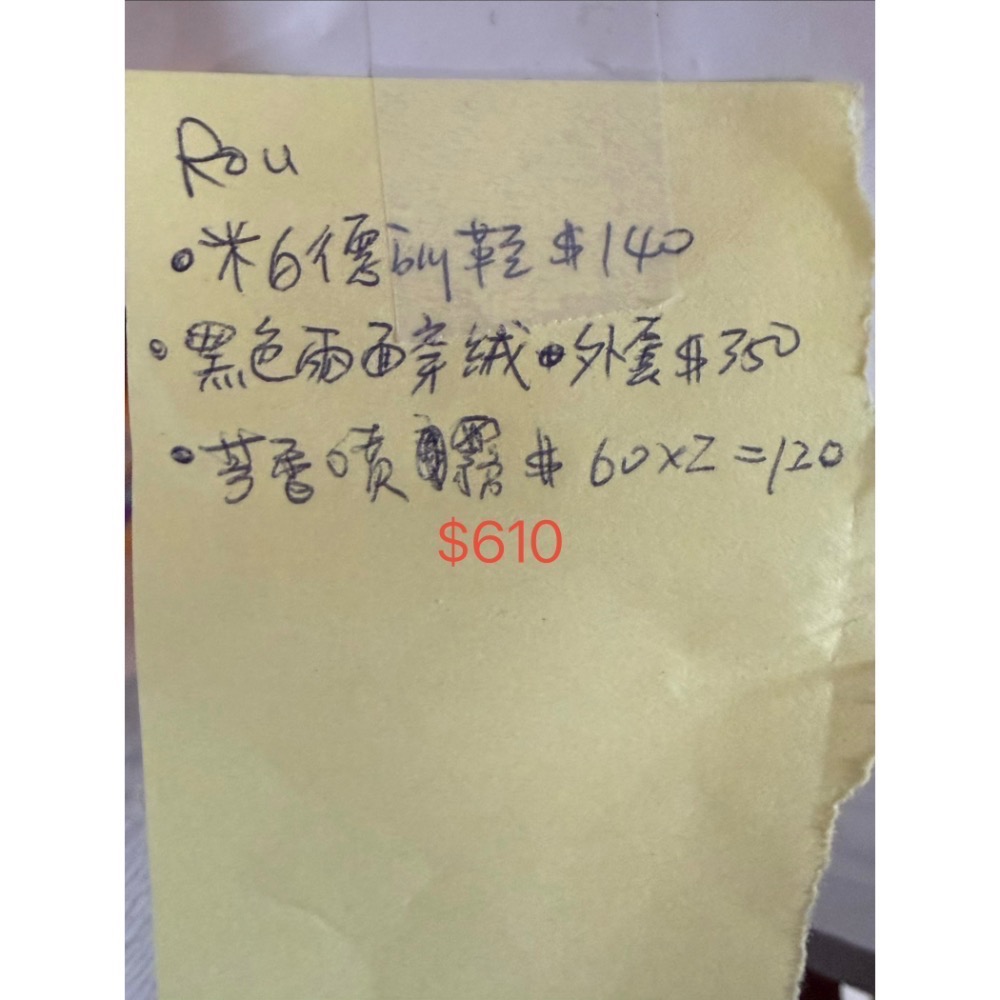 Rou
•米白德訓鞋 $140
•黑色兩面穿絨外套 $350
•芳香噴霧 $ 60x2=120
$610